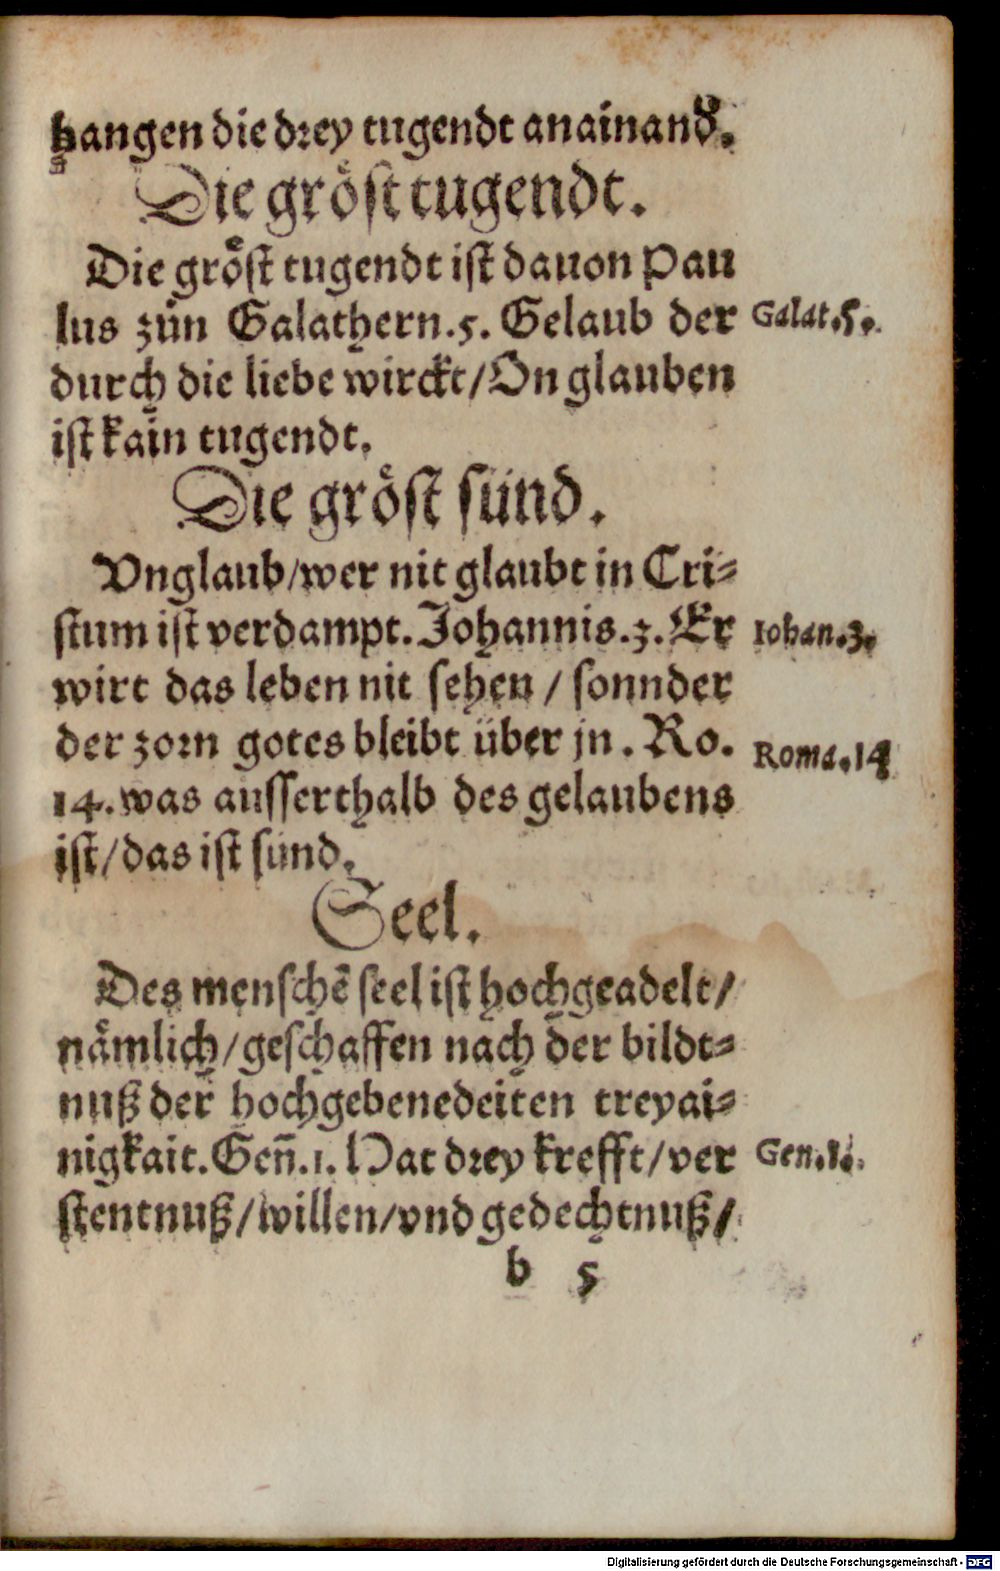 hangen die drey tugendt anainand̕.
Die gröst tugendt.
Die gröst tugendt ist dauon Pau
lus zůn Galathern.5. Gelaub der Galat.5.
durch die liebe wirckt/On glauben
ist kain tugendt.
Die gröst sünd.
Vnglaub/wer nit glaubt in Cri⸗
stum ist verdampt. Johannis.3. Er Iohan.3.
wirt das leben nit sehen / sonnder
der zorn gotes bleibt über jn. Ro. Roma.14
14. was ausserthalb des gelaubens
ist/das ist sünd.
Seel.
Des menschē seel ist hochgeadelt/
nämlich/geschaffen nach der bildt⸗
nuß der hochgebenedeiten treyai⸗
nigkait. Geñ.1. Hat drey krefft/ver Gen.1.
stentnuß/willen/vnd gedechtnuß/
b 5
Digitalisierung gefördert durch die Deutsche Forschungsgemeinschaft - DFG